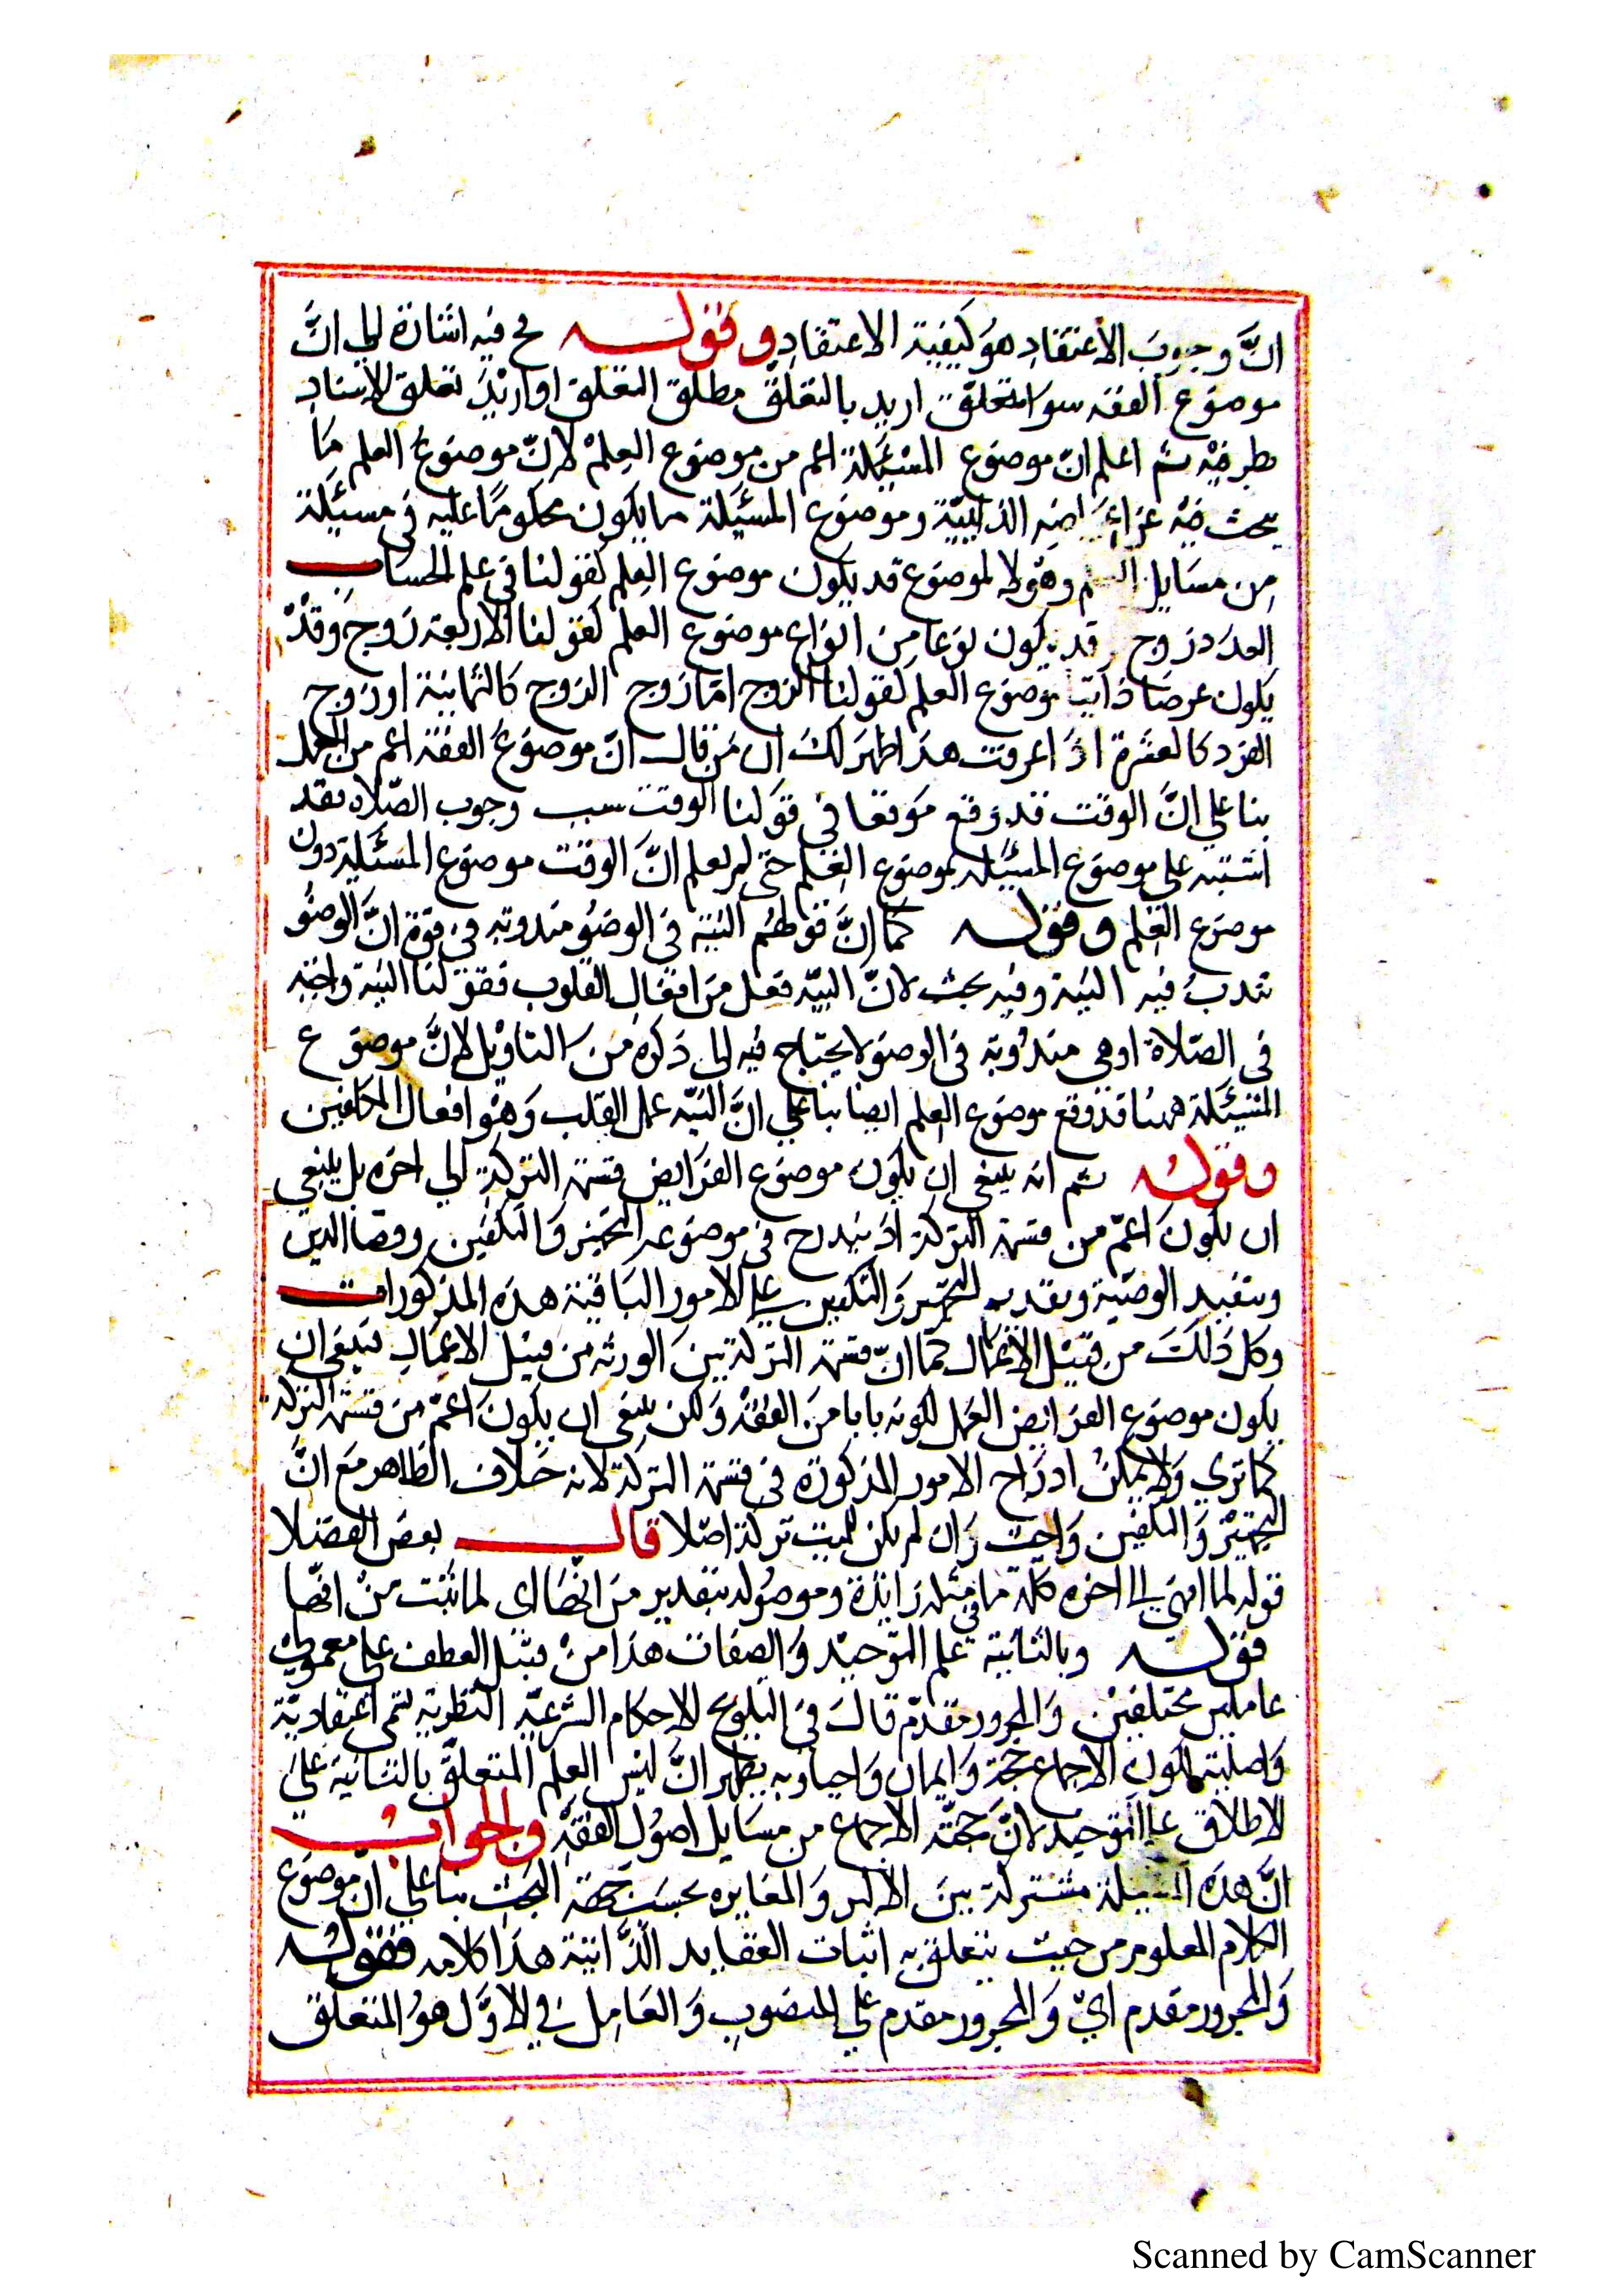 انَّ وجوبَ الأعتقادِ هوُ كَيفية الاعتقادِ وقوله ح فيه اشارة الى انَّ
موضوع الفقه سواء تعلق اريد بالتعلّق مطلق التعلق او اريد تعلق الاسناد
بطرفيْه ثم اعلم انّ موضوع المسْئَلة اعم من موضوع العِلمْ لانّ موضوعَ العلم مَا
يبحث فيْه عن اعراضه الذاتيّة وموضوع المسئَلة ما يكون محكومًا عليه فى مسئَلة
مِن مسَايل العلم وهو لا لموضوع قد يكون موضوع العِلم كقولنا فى علم الحسَاب
العدَد زوج قد يكون نوعا مِن انواع موضوع العلم كقولنا الاربعة زوج وَقدْ
يكون عرضا ذاتيا لموضوع العلم كقولنا الزوج امّا زوج الزوج كالثمانية او زوج
الفرد كالعشرة اذا عرفت هذا ظهرَ لكَ ان مَن قال انّ موضوعَ الفقه اعم من العمل
بنا على انَّ الوقت قد وقع موَقعا في قوَلنا الوقت سبب وجوب الصّلاه فقد
اشتبه على موضوع المسئَله بموضوع العِلم حتى لم يعلم انَّ الوقت موضوع المسَئَلة دون
موضوع العِلم وقوله كمَا انَّ قولهُم النيّة في الوضوُ مندوبة فى قوّة انَّ الوضوُ
تندبُ فيه النيَة وفيه بحث لانّ النيّة فعل مَن افعَال القلوب فقولنا النيّة واجبة
فى الصّلاة او هي مندُوبة فى الوضوَ لا يحتاج فيه الى ذكره من التاوْيل لانَّ موضوع
المسْئَلة ههنا قدْ وقع موضوع العِلم ايضا بنا على انَّ النيّه عمل القلب وَهوُ افعال المكلفين
وقولهُ ثم انه ينبغي ان يكون موضوع الفرَايض قسمة التركة الى اخره بل ينبغي
ان يكونَ اعمّ من قسمة التركة اذ يندرج فى موضوعه التجهيز وَالتكفين وقضا الدين
وتنفيد الوصيّة وتقديم التجهيز وَالتكفين على الامور البَاقية هذه المذكورات
وكل ذلكَ من قبيْل الاعمال كما انّ قسمة التركة بين الورثه من قبيل الاعمَالِ فينبغي ان
يكون موضوع الفرَايض العمل لكونه بابا منَ الفقْه وَلكن ينبغي ان يكونَ اعمّ من قسمة التركة
كما ترى وَلا يمكنُ ادرَاج الامور المذكورة فى قسمة التركة لانه خلاف الظاهر مَع انَّ
التجهيْز وَالتكفين وَاجبٌ وَان لم يكن للميت تركة اصْلا قال بعض الفضلا
قوله لما انهي الى اخره كلمة ما فى مثله زايدة وموصُوله بتقدير منَ انحَا اى لما ثبَت منْ انحا
قوله وبالثانية علم التوْحيْد وَالصفات هذا منْ قبيل العطف على معمولى
عاملين مختلفيْن وَالمجرور مقدّم قال فى التلويح الاحكام الشرعيّة النظرية تسمى اعتقاديّة
وَاصلية لكون الاجماع حجّة وَايمان وَاحياوبه يظهر انَّ ليْس العلم المتعلّق بالثانية علىَ
الاطلاق على التوحيد لانَّ حجيّة الاجماع من مسَايل اصوُل الفقهِ والجوابُ
انَّ هذه المسئلة مشتركة بينَ الاكبر وَالمغايره بحسَب جهة البحث بنا على ان موضوع
الكلام المعلوم من حيث يتعلق به اثبات العقايد الدَّاتية هذا كلامه فقولُه
وَالمجرور مقدم ايْ وَالمجرور مقدم على المنصوب وَالعَامِل فى الاوَّل هوُ المتعلق
Scanned by CamScanner